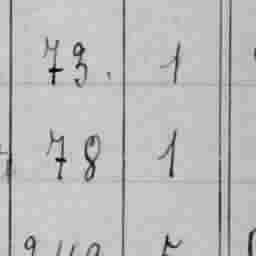 73. 1
78 1